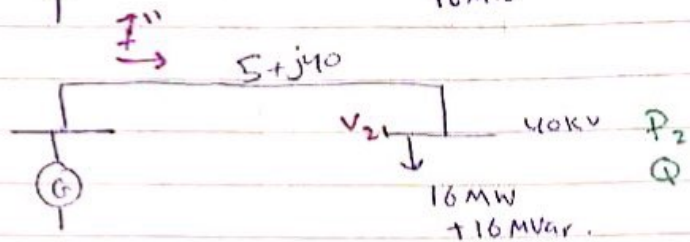 I"
5+j40
V₂
40KV
P₂
G
Q
16MW
+16MVar.